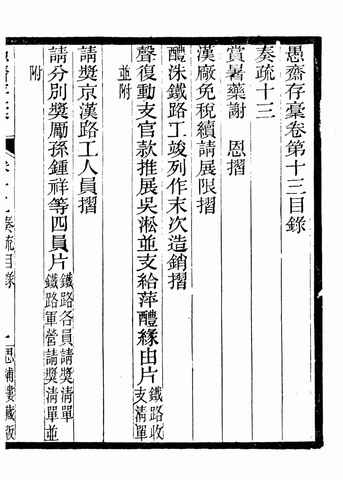 愚齋存稾卷第十三目錄
奏疏十三
賞暑藥謝　恩摺
漢廠免稅續請展限摺
醴洙鐵路工竣列作末次造銷摺
聲復動支官款推展吳淞並支給萍醴緣由片鐵路收支清單
並附
請奬京漢路工人員摺
請分別奬勵孫鍾祥等四員片鐵路各員請奬清單鐵路軍營請奬清單並
附
奏疏目錄
思補樓藏版